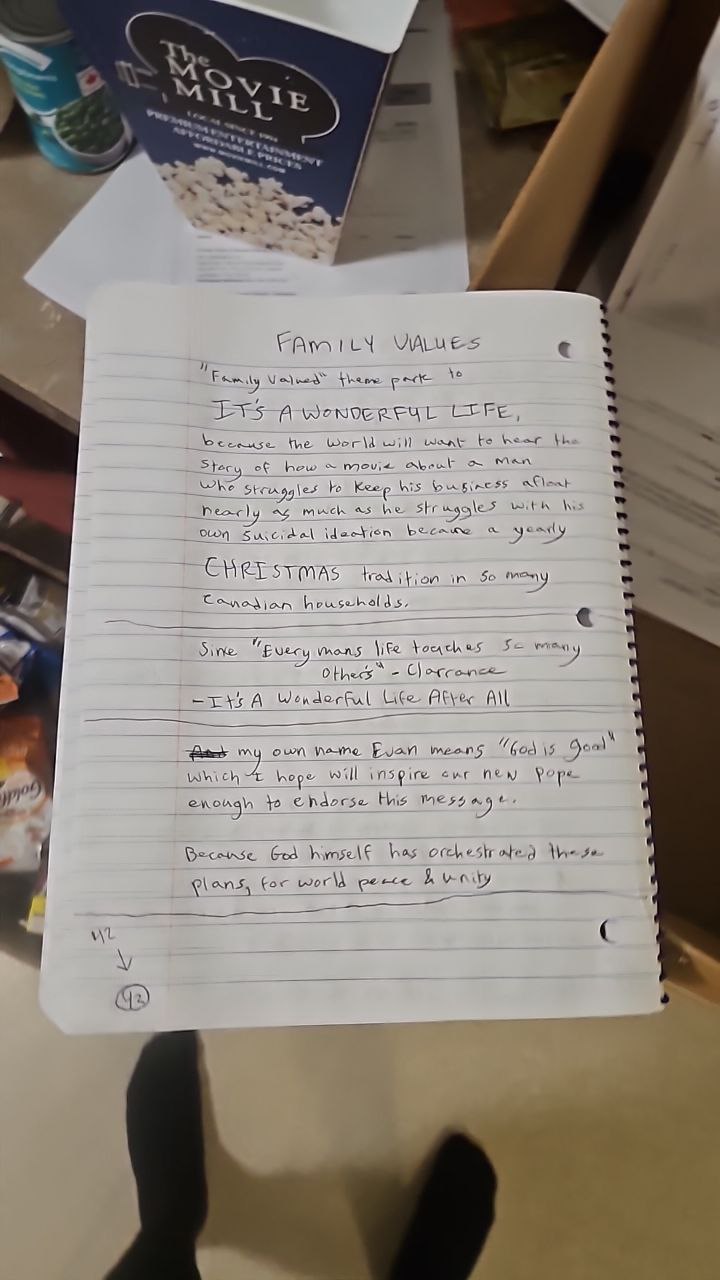 The
MOVIE
MILL
LOCAL SINCE 1994
PREMIUM ENTERTAINMENT
AFFORDABLE PRICES
www.moviemill.com
FAMILY VALUES
"Family Valued" theme park to
IT'S A WONDERFUL LIFE,
because the world will want to hear the
story of how a movie about a man
who struggles to keep his business afloat
nearly as much as he struggles with his
own suicidal ideation became a yearly
CHRISTMAS tradition in so many
Canadian households.
Since "Every mans life touches so many
Other's" - Clarrance
- It's A Wonderful Life After All
And my own name Evan means "God is good"
which I hope will inspire our new pope
enough to endorse this message.
Because God himself has orchestrated these
plans, for world peace & unity
42
↓
43
Goldf